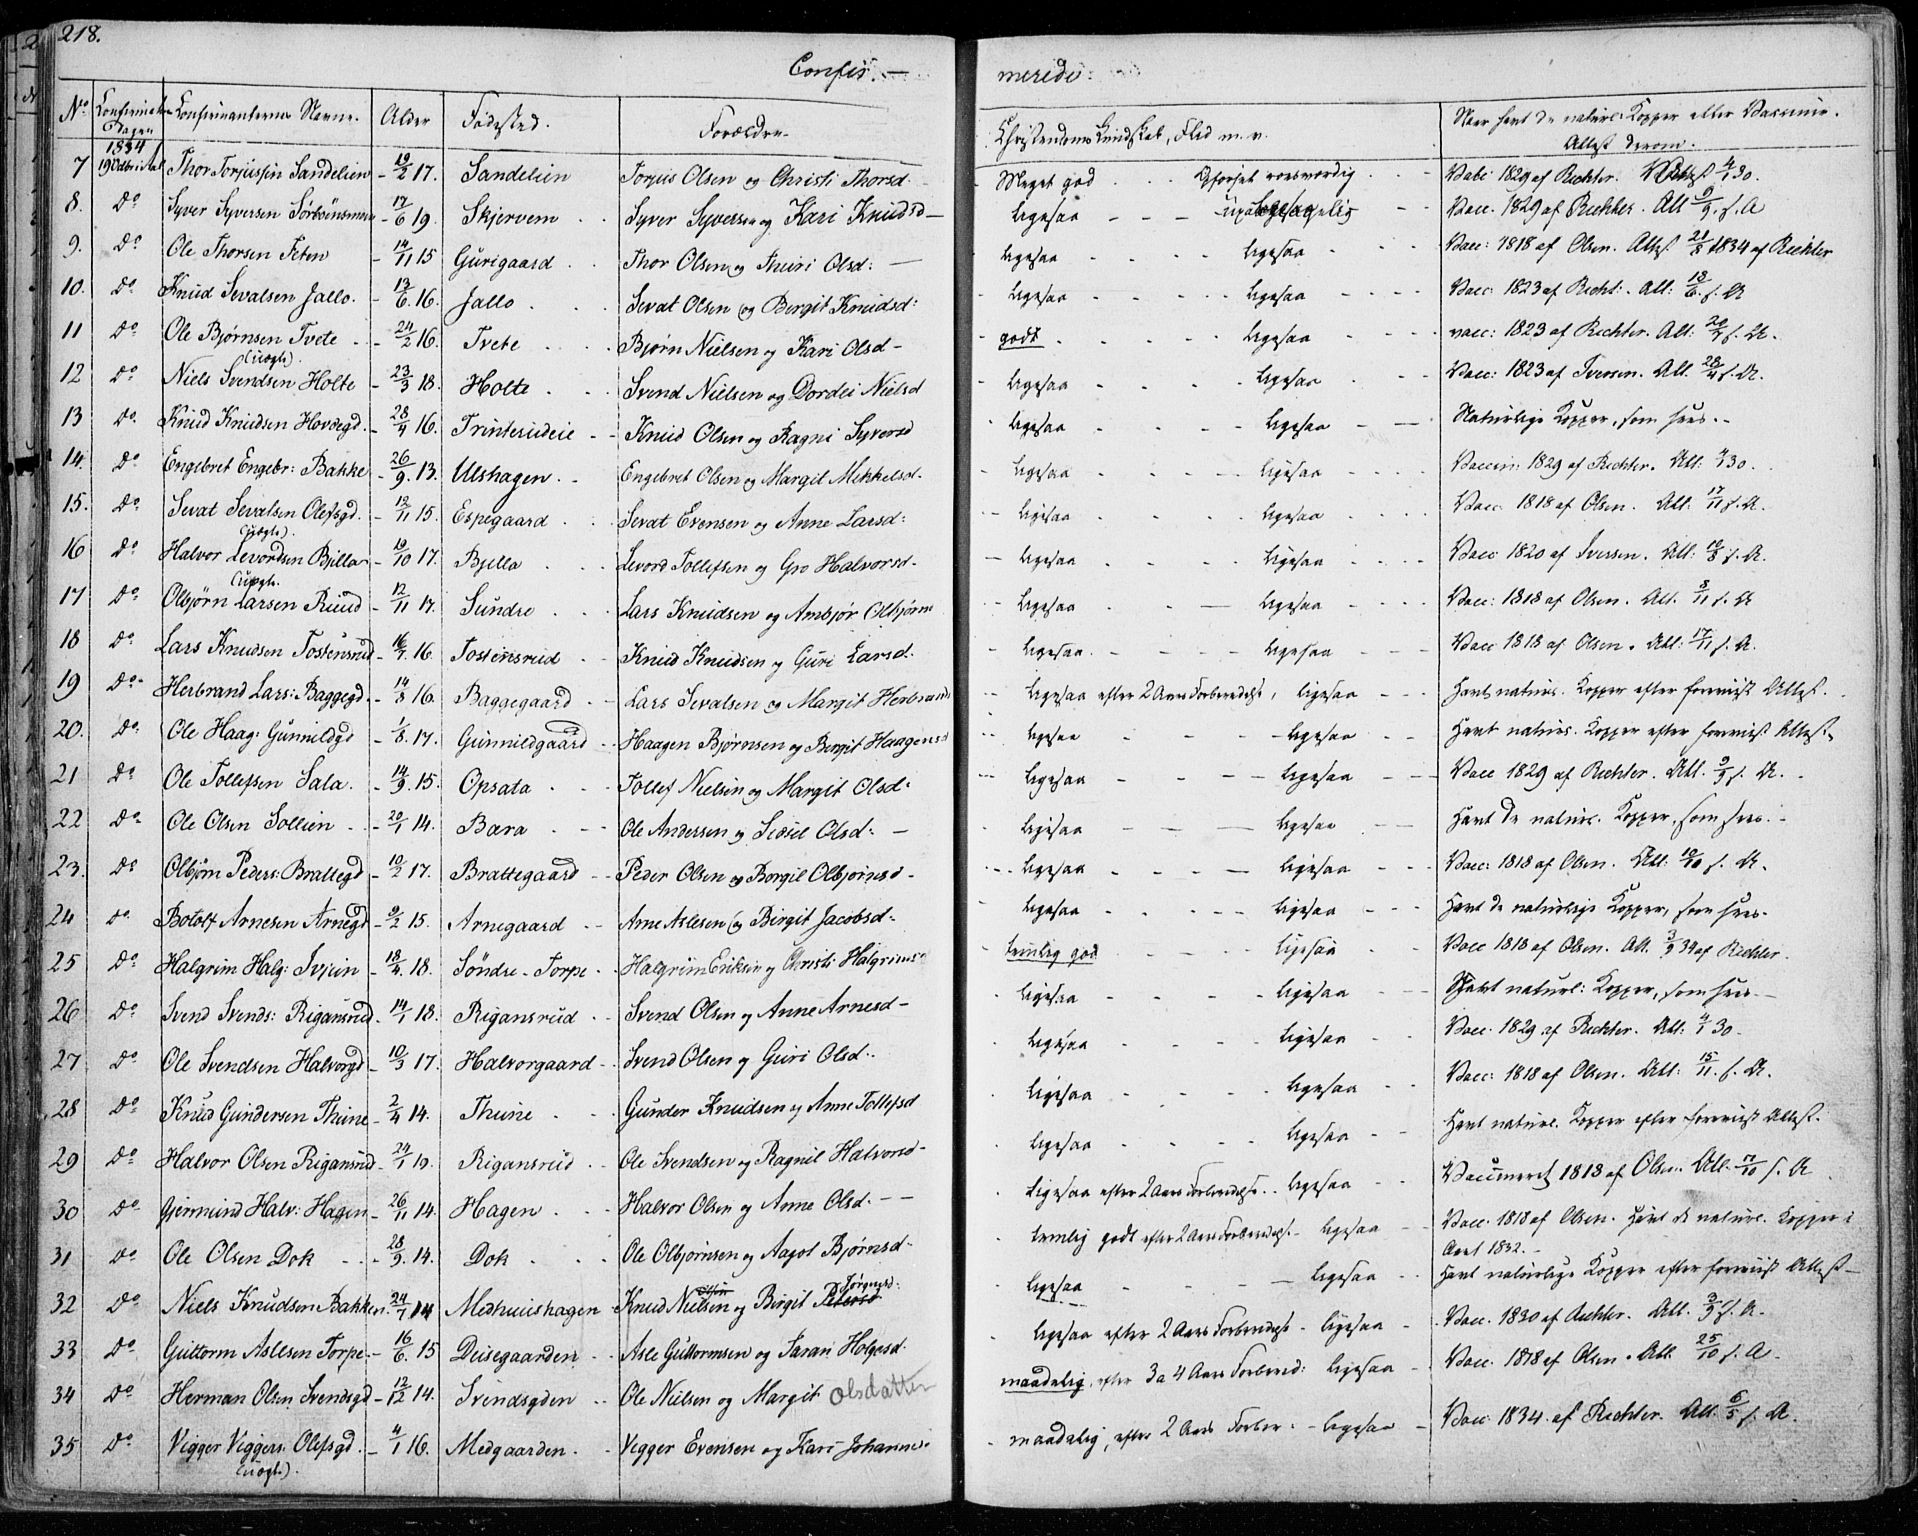 218.
Confir. — merede
No. Confirmations Dagen Confirmanternes Navne. Alder Fødested. Forældre. Christendoms Kundskab, Flid m. v. Naar havt de naturl: Kopper eller Vaccineret. Attest derom.
1834
7 19 Octbr i Aal Thor Torjussen Sandelien 19/2 17. Sandelien Torjus Olsen og Christi Thorsd: Meget god Vacc 1829 af Richter. Attest 4/1 30.
8. Do Syver Syversen 17/6 19. Skjervem Syver Syversen og Kari Knudsd — Ligesaa Vacc. 1829 af Richter. Att 9/9. s. A
9. Do Ole Thorsen Feten 14/11 15 Gurigaard Thor Olsen og Thuri Olsd: — Ligesaa Ligesaa Vacc: 1818 af Olsen. Attest 21/8 1834 af Richter
10. Do Knud Sevalsen Jallo. 13/6. 16. Jallo Sevat Olsen og Bergit Knudsd: Ligesaa Ligesaa Vacc: 1823 af Richt:. Att: 18/6. s. A
11 Do Ole Bjørnsen Tvete (uægte). 24/2 16. Tvete Bjørn Nielsen og Kari Olsd — godt Ligesaa vacc: 1823 af Richter. Att: s. A.
12 Do Niels Svendsen Holte 23/3 18. Holte Svend Nielsen og Dordei Nielsd Ligesaa Ligesaa Vacc: 1823 af Iversen. Att. 28/4 s. A.
13 Do Knud Knudsen Hovdegd. 28/4 16. Trinterudeie Knud Olsen og Ragni Syversd Ligesaa Ligesaa Naturlige Kopper, som sees. -
14. Do Engebret Engebr: Bakke 26/9. 13. Ulshagen Engebret Olsen og Margit Mikkelsd. Ligesaa Ligesaa Vaccin: 1829 af Richter. Att: 30.
15. Do Sevat Sevalsen Olefsgd. (uægte). 12/11 15. Espegaard Sevat Evensen og Anne Larsd: Ligesaa Ligesaa Vacc: 1818 af Olsen. Att: 17/11 s. A.
16 Do Halvor Levordsen Bjella (uægte. 19/10 17. Bjella Levord Tollefsen og Gro Halvorsd. Ligesaa Ligesaa Vacc: 1820 af Iversen. Att: s. A.
17 Do Olbjørn Larsen Ruud 12/11 17. Sundre Lars Knudsen og Ambjør Olbjørn Ligesaa Ligesaa Vacc: 1818 af Olsen. Att. 8/11 s. A
18 Do Lars Knudsen Tostensrud 16. Tostensrud Knud Knudsen og Guri Larsd. Ligesaa Ligesaa Vacc 1818 af Olsen. Att: 17/11 s. A.
19 Do Herbrand Lars: Baggegd. 14/8 16. Baggegaard Lars Sevalsen og Margit Herbrand Ligesaa efter 2 Aars Forberedelse, ligesaa Havt naturl. Kopper efter foreviist Attest.
20. Do Ole Haag: Gunnildgd 1/8. 17. Gunnildgaard Haagen Bjørnsen og Bergit Haagensd Ligesaa Ligesaa Havt naturl. Kopper efter foreviist Attest.
21 Do Ole Tollefsen Sata. 14/9. 15. Opsata Tollef Nielsen og Margit Olsd: Ligesaa Ligesaa Vacc 1829 af Richter. Att. 9/9 s. A.
22 Do Ole Olsen Sollien 20/1 14. Bæra Ole Andersen og Sidsel Olsd: — Ligesaa Ligesaa Havt de naturl. Kopper, som sees. -
23. Do Olbjørn Peders: Brattegd 10/2 17. Brattegaard Peder Olsen og Borgil Olbjørnsd. Ligesaa Ligesaa Vacc: 1818 af Olsen. Att: s. A.
24 Do Botolf Arnesen Arnegd 9/2 15. Arnegaard Arne Aslesen og Birgit Jacobsd. Ligesaa Ligesaa Havt de naturlige Kopper, som sees.
25 Do Halgrim Halg: Svjein 18/4. 18. Søndre-Torpe Halgrim Eriksen og Christi Halgrims temlig god Ligesaa Vacc 1818 af Olsen. Att. 3/9 34 af Richter.
26 Do Svend Svends: Rigansrud 14/1 18. Rigansrud Svend Olsen og Anne Arnesd — Ligesaa Ligesaa Havt naturl: Kopper, som sees. —
27 Do Ole Svendsen Halvorgd 10/3 17. Halvorgaard Svend Olsen og Guri Olsd: Ligesaa Ligesaa Vacc. 1829 af Richter. Att: 4/1 30.
28 Do Knud Gundersen Thune 2/4 14. Thune Gunder Knudsen og Anne Tollefsd Ligesaa Ligesaa Vacc: 1818 af Olsen. Att: 15/11. s. A.
29 Do Halvor Olsen Rigansrud 24/1 Rigansrud Ole Svendsen og Ragnil Halvorsd Ligesaa Ligesaa Havt naturl. Kopper efter foreviist Attest.
30 Do Gjermund Halv: Hagen 26/11 14. Hagen Halvor Olsen og Anne Olsd. Ligesaa efter 2 Aars Forberedelse Ligesaa Vaccineret 1818 af Olsen. Att. s. A
31 Do Ole Olsen Dok 28/3. 14. Dok Ole Olbjørnsen og Aagot Bjørnsd. temlig godt efter 2 Aars Forberedelse Ligesaa Vacc. 1818 af Olsen. Havt de naturl. Kopper i Aaret 1832. -
32 Do Niels Knudsen Bakken. 24/7 14 Medhuushagen Knud Nielsen Olsen og Birgit Pedersd Jørgensd: Ligesaa Ligesaa Havt naturlige Kopper efter foreviist Attest —
33 Do Guttorm Aslesen Torpe 16/6. 15 Deisegaarden Asle Guttormsen og Saran Holgesd. Ligesaa efter 2 Aars Forberedelse Ligesaa Vacc. 1830 af Richter. Att. s. A.
34 Do Herman Olsen Svendsgd 12/12 14. Svendsgden Ole Nielsen og Margit olsdatter maadelig, efter 3 a 4 Aars Forbered: Ligesaa Vacc. 1818 af Olsen. Att 25/10 s. A
35 Do Vigger Viggers: Olefsgd. (uægte). 4/1 16. Medgaarden Vegger Evensen og Kari Johannes maadelig, efter 2 Aars Forber: Ligesaa Vacc: 1834 af Richter. Att. 6/5 s. A.